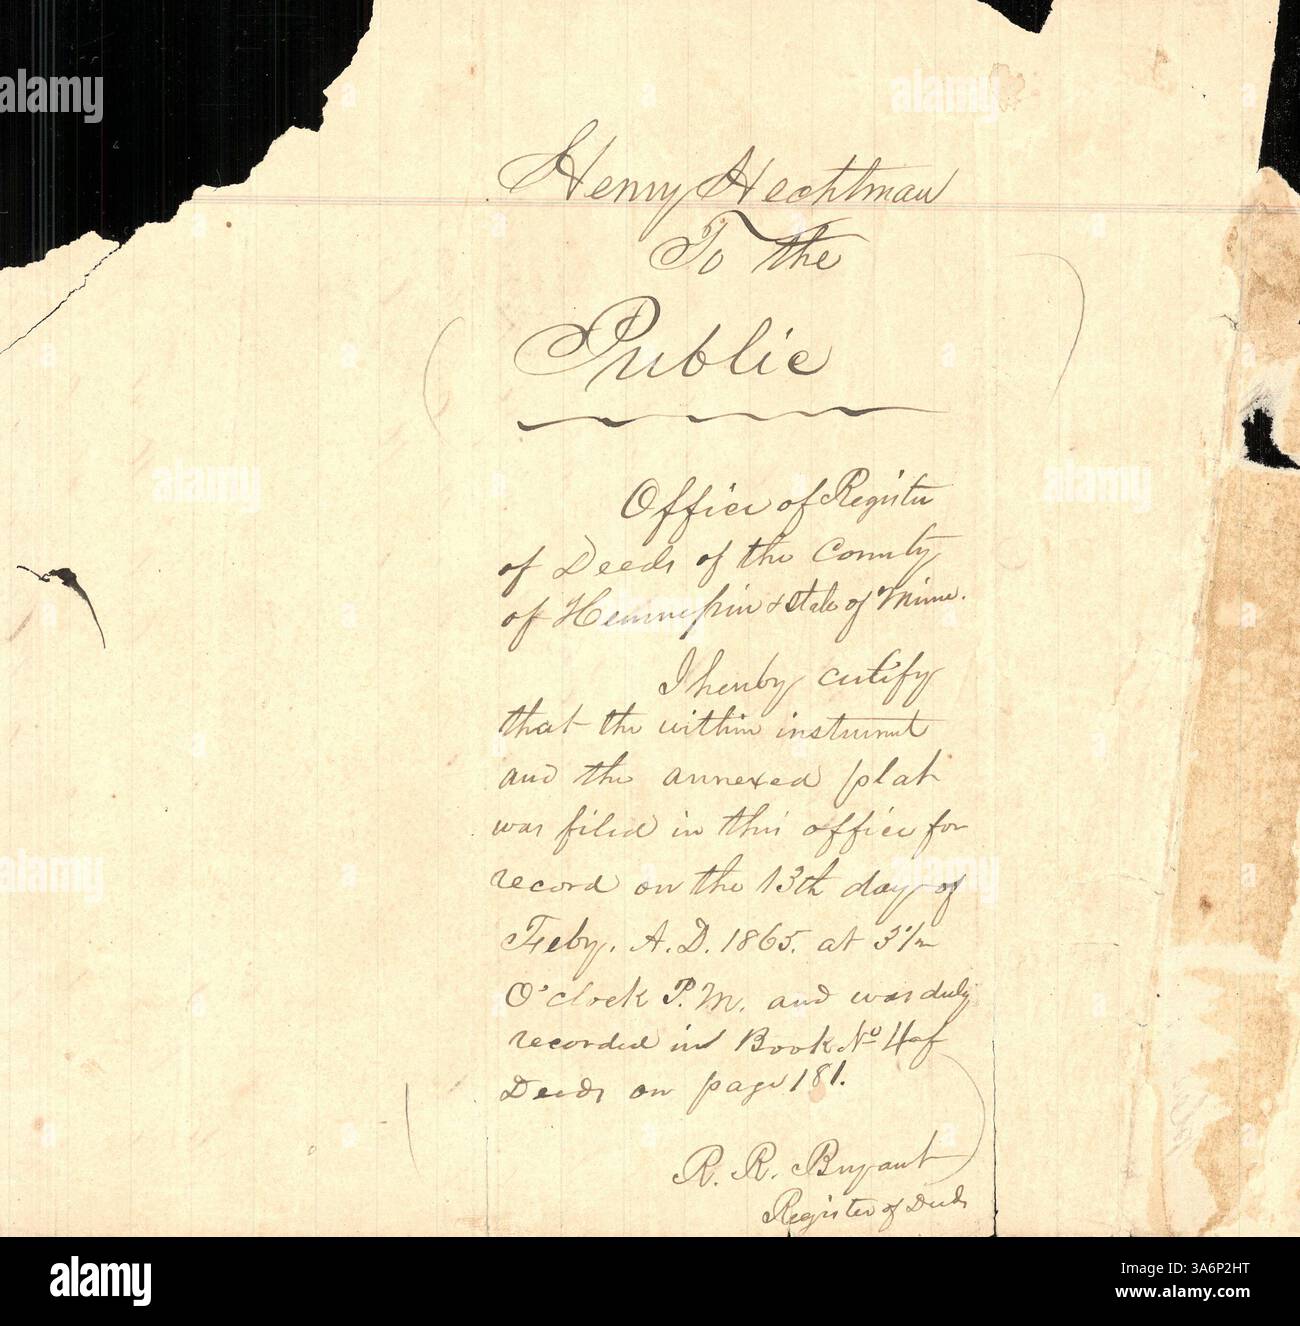 Henry Hechtman
To the
Public
Office of Register
of Deeds of the County
of Hennepin & State of Minn.
I hereby certify
that the within instrument
and the annexed plat
was filed in this office for
record on the 13th day of
Feby. A.D. 1865. at 3 1/2
O'clock P.M. and was duly
recorded in Book No 4 of
Deeds on page 181.
R. R. Bryant
Register of Deeds
alamy
Image ID: 3A6P2HT
www.alamy.com